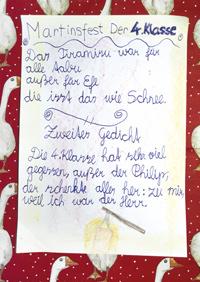 Martinsfest Der 4. Klasse
Das Tiramisu war für
alle tabu
außer für Efe
die isst das wie Schnee.
Zweites Gedicht
Die 4. Klasse hat sehr viel
gegessen, außer der Philip,
der schenkte alles her: zu mir,
weil ich war der Herr.